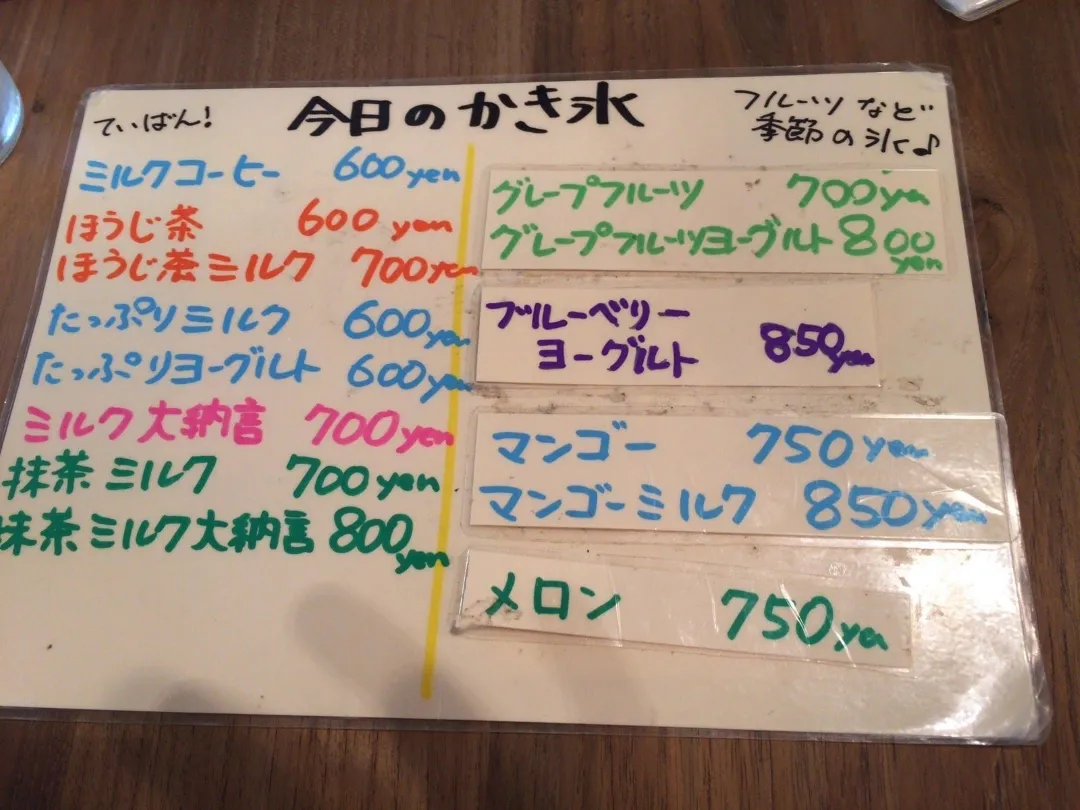 今日のかき氷
ていばん!
ミルクコーヒー 600yen
ほうじ茶 600yen
ほうじ茶ミルク 700yen
たっぷりミルク 600yen
たっぷりヨーグルト 600yen
ミルク大納言 700yen
抹茶ミルク 700yen
抹茶ミルク大納言 800yen
フルーツなど
季節の氷♪
グレープフルーツ 700yen
グレープフルーツヨーグルト 800yen
ブルーベリー
ヨーグルト 850yen
マンゴー 750yen
マンゴーミルク 850yen
メロン 750yen